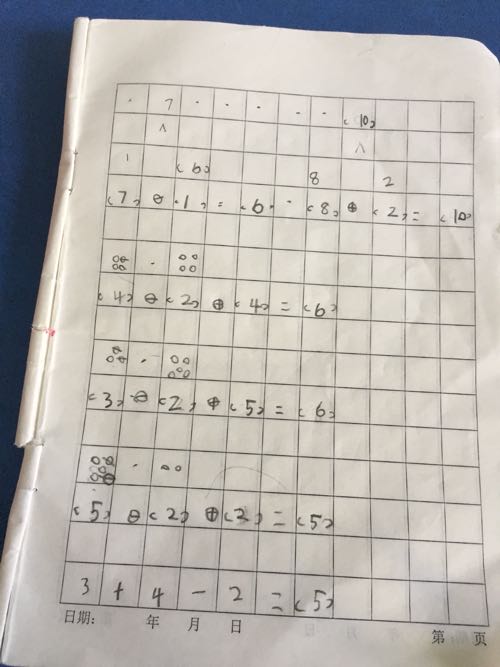 · 7 · · · · · (10)
∧ ∧
1 (6) 8 2
(7) ⊖ (1) = (6) · (8) ⊕ (2) = (10)
(4) ⊖ (2) ⊕ (4) = (6)
(3) ⊖ (2) ⊕ (5) = (6)
(5) ⊖ (2) ⊕ (2) = (5)
3 + 4 - 2 = (5)
日期: 年 月 日 第 页